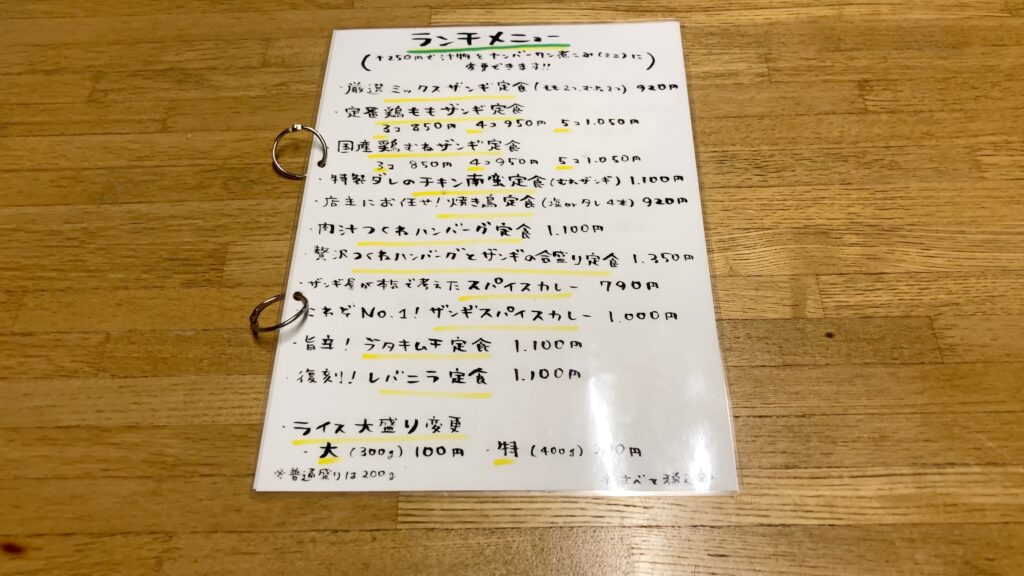 ランチメニュー
(+250円で汁物をナンバーワン煮こみ(ミニ)に
変更できます!!)
・厳選ミックスザンギ定食(ももコ2、むねコ2) 920円
・定番鶏ももザンギ定食
3コ 850円 4コ 950円 5コ 1.050円
国産鶏むねザンギ定食
3コ 850円 4コ 950円 5コ 1.050円
・特製ダレのチキン南蛮定食(むねザンギ) 1.100円
・店主にお任せ!焼き鳥定食(塩orタレ4本) 920円
・肉汁つくねハンバーグ定食 1.100円
・贅沢つくねハンバーグとザンギの合盛り定食 1.350円
・ザンギ屋が本気で考えたスパイスカレー 790円
これぞNo.1!ザンギスパイスカレー 1.000円
・旨辛!ブタキムチ定食 1.100円
・復刻!レバニラ定食 1.100円
・ライス大盛り変更
・大(300g) 100円 ・特(400g) 円
※普通盛りは200g
すべて税込